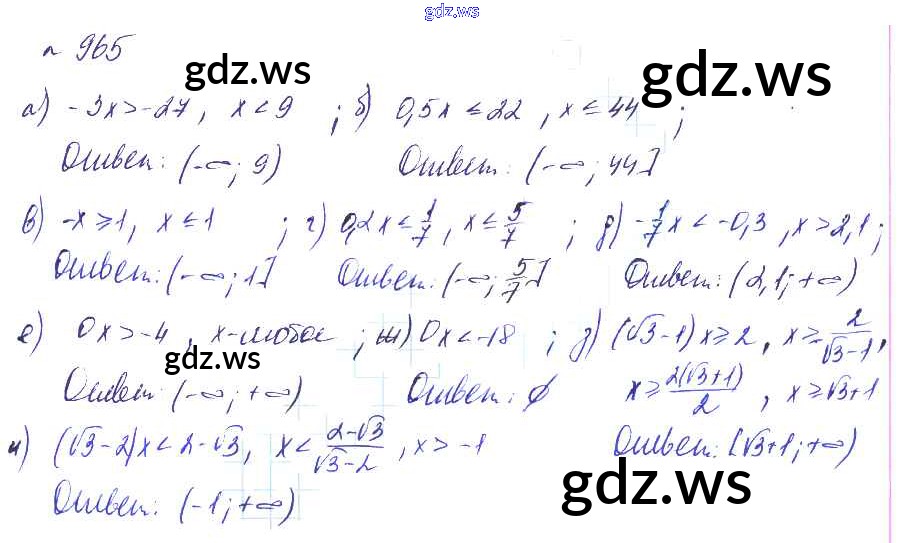 gdz.ws
№ 965
gdz.ws
gdz.ws
а) -3x>-27, x<9 ; б) 0,5x≤22, x≤44 ;
Ответ: (-∞; 9) Ответ: (-∞; 44]
в) -x≥1, x≤1 ; г) 0,2x≤1/7, x≤5/7 ; д) -1/7x<-0,3, x>2,1;
Ответ: (-∞; 1] Ответ: (-∞; 5/7] Ответ: (2,1; +∞)
е) 0x>-4, x-любое ; ж) 0x<-18 ; з) (√3-1)x≥2, x≥2/(√3-1),
gdz.ws
Ответ: (-∞; +∞) Ответ: ∅ x≥2(√3+1)/2, x≥√3+1
и) (√3-2)x<2-√3, x<(2-√3)/(√3-2), x>-1 Ответ: [√3+1; +∞)
gdz.ws
Ответ: (-1; +∞)